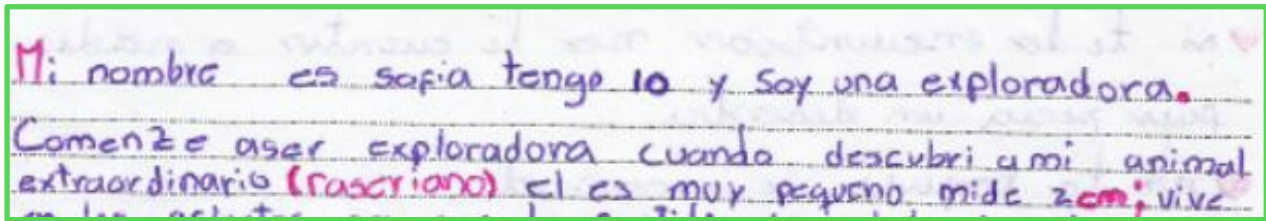 Mi nombre es sofia tengo 10 y soy una exploradora.
Comenze aser exploradora cuando descubri a mi animal
extraordinario (rascriano) el es muy pequeno mide 2cm; vive